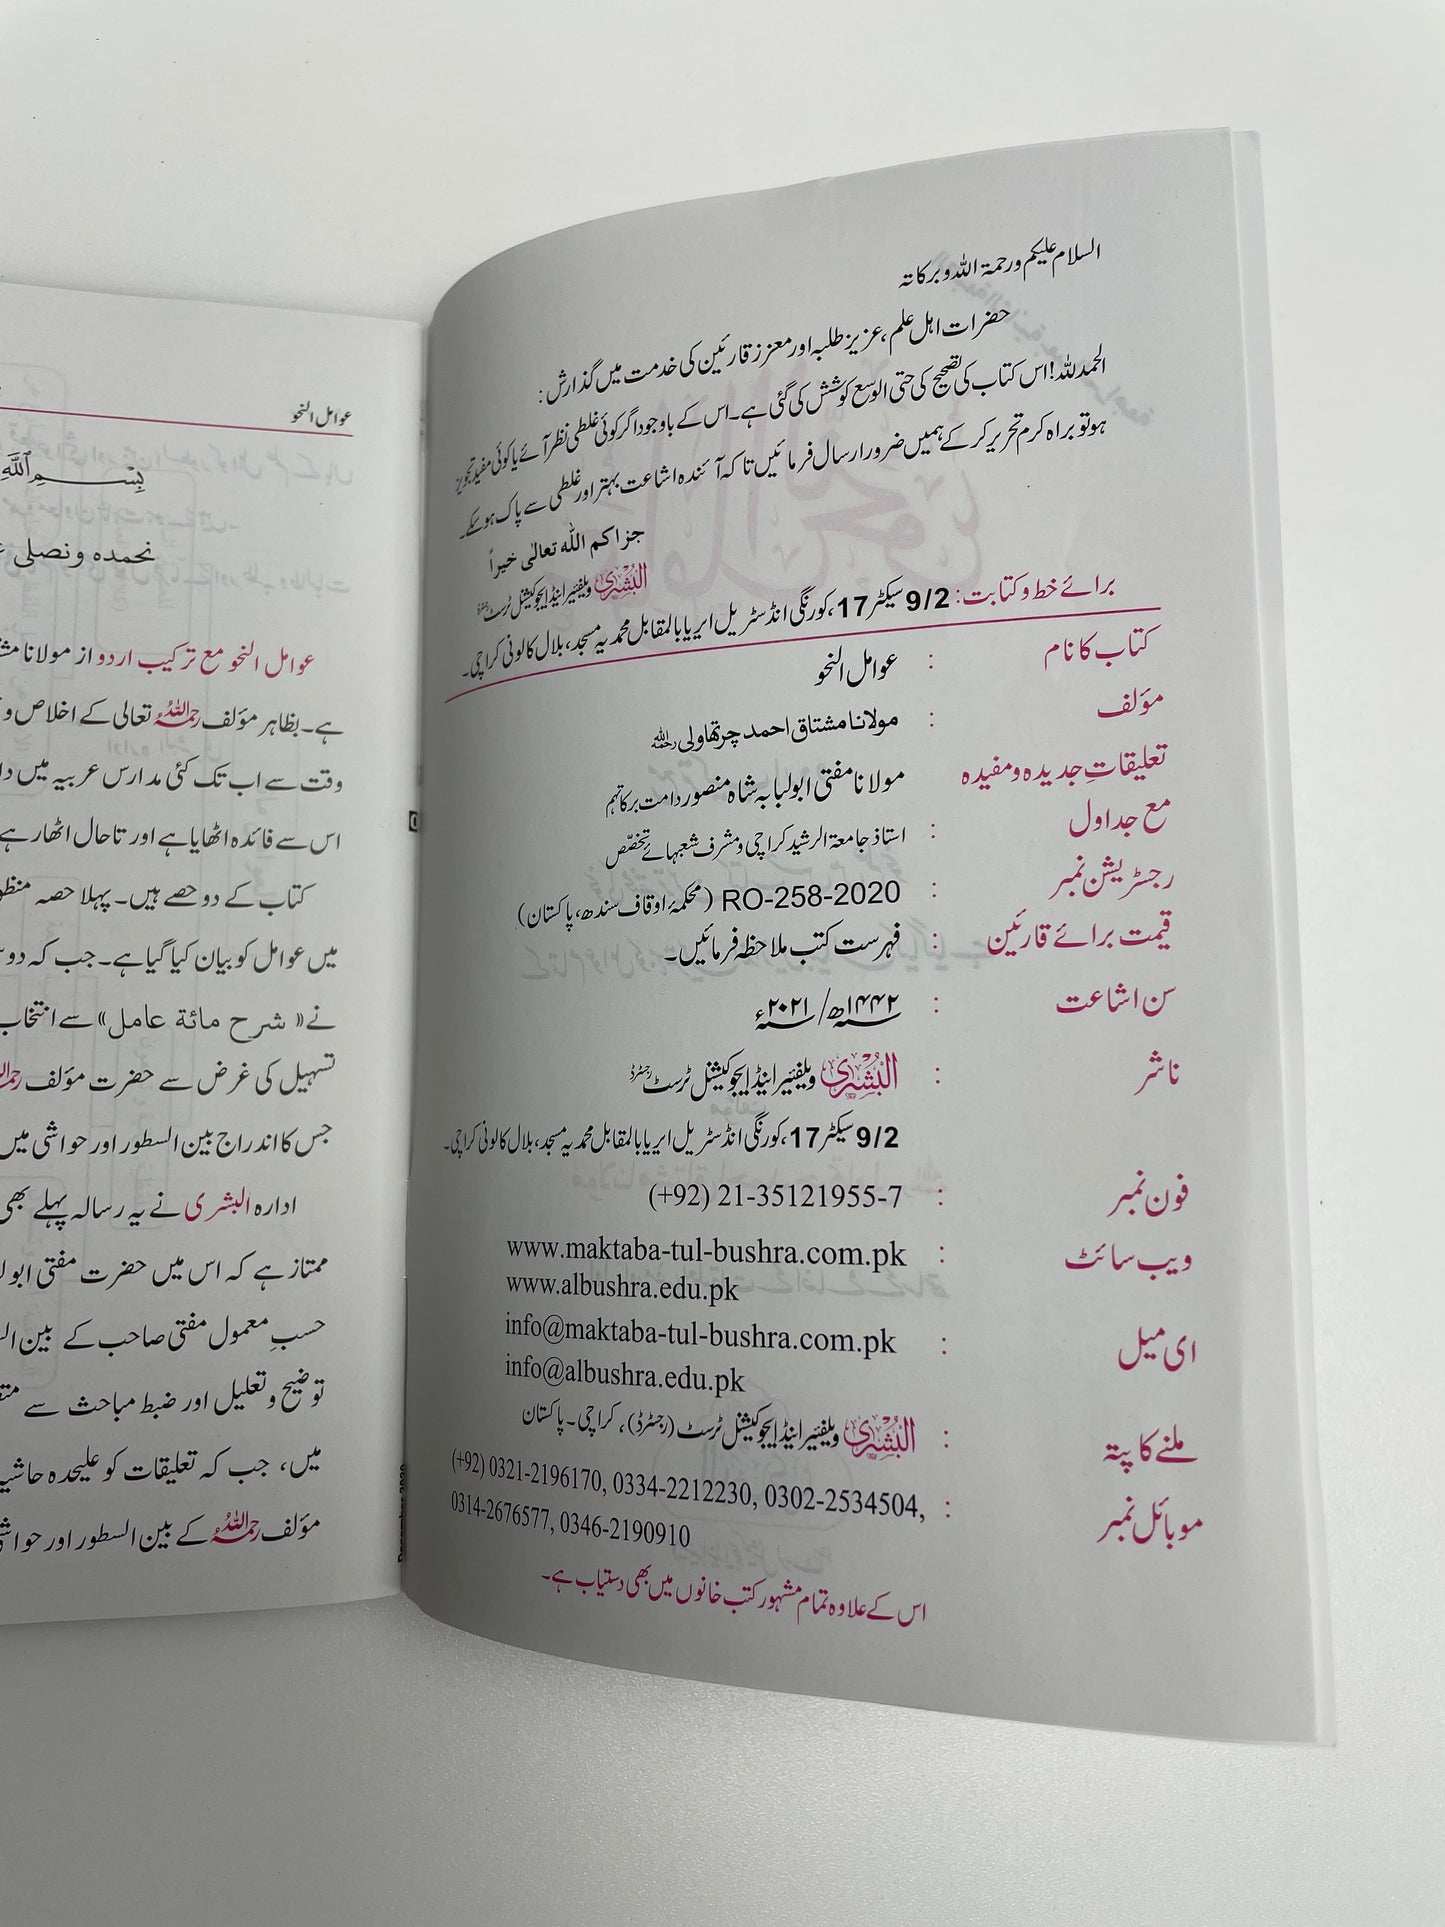 السلام علیکم ورحمۃ اللہ وبرکاتہ
حضرات اہل علم، عزیز طلبہ اور معزز قارئین کی خدمت میں گذارش :
الحمدللہ! اس کتاب کی تصحیح کی حتی الوسع کوشش کی گئی ہے۔ اس کے باوجود اگر کوئی غلطی نظر آئے یا کوئی مفید تجویز
ہو تو براہ کرم تحریر کرکے ہمیں ضرور ارسال فرمائیں تاکہ آئندہ اشاعت بہتر اور غلطی سے پاک ہوسکے۔
جزاکم اللہ تعالٰی خیراً
البُشریٰ ویلفئیر اینڈ ایجوکیشنل ٹرسٹ رجسٹرڈ
برائے خط وکتابت: 9/2 سیکٹر 17، کورنگی انڈسٹریل ایریا بالمقابل محمدیہ مسجد، بلال کالونی کراچی۔
کتاب کا نام : عوامل النحو
مؤلف : مولانا مشتاق احمد چرتھاولی رحمہ اللہ
تعلیقاتِ جدیدہ ومفیدہ مولانا مفتی ابولبابہ شاہ منصور دامت برکاتہم
مع جداول : استاذ جامعۃ الرشید کراچی ومشرف شعبہائے تخصّص
رجسٹریشن نمبر : RO-258-2020 (محکمۂ اوقاف سندھ، پاکستان)
قیمت برائے قارئین : فہرست کتب ملاحظہ فرمائیں۔
سن اشاعت : ۱۴۴۲ھ/ ۲۰۲۱ء
ناشر : البُشریٰ ویلفئیر اینڈ ایجوکیشنل ٹرسٹ رجسٹرڈ
9/2 سیکٹر 17، کورنگی انڈسٹریل ایریا بالمقابل محمدیہ مسجد، بلال کالونی کراچی۔
فون نمبر : (+92) 21-35121955-7
ویب سائٹ : www.maktaba-tul-bushra.com.pk
www.albushra.edu.pk
ای میل : info@maktaba-tul-bushra.com.pk
info@albushra.edu.pk
ملنے کا پتہ : البُشریٰ ویلفئیر اینڈ ایجوکیشنل ٹرسٹ (رجسٹرڈ)، کراچی۔ پاکستان
موبائل نمبر : (+92) 0321-2196170, 0334-2212230, 0302-2534504,
0314-2676577, 0346-2190910
اس کے علاوہ تمام مشہور کتب خانوں میں بھی دستیاب ہے۔
عوامل النحو
بِسْمِ اللَّهِ
نحمده ونصلي
عوامل النحو مع ترکیب اردو از مولانا
ہے۔ بظاہر مؤلف رحمہ اللہ تعالی کے اخلاص و
وقت سے اب تک کئی مدارس عربیہ میں
اس سے فائدہ اٹھایا ہے اور تاحال اٹھا رہے
کتاب کے دو حصے ہیں۔ پہلا حصہ
میں عوامل کو بیان کیا گیا ہے۔ جب کہ
نے «شرح مائة عامل» سے انتخاب
تسہیل کی غرض سے حضرت مؤلف
جس کا اندراج بین السطور اور حواشی میں
ادارہ البشری نے یہ رسالہ پہلے بھی
ممتاز ہے کہ اس میں حضرت مفتی
حسبِ معمول مفتی صاحب کے بین
توضیح وتعلیل اور ضبط مباحث سے
میں، جب کہ تعلیقات کو علیحدہ
مؤلف رحمہ اللہ کے بین السطور اور